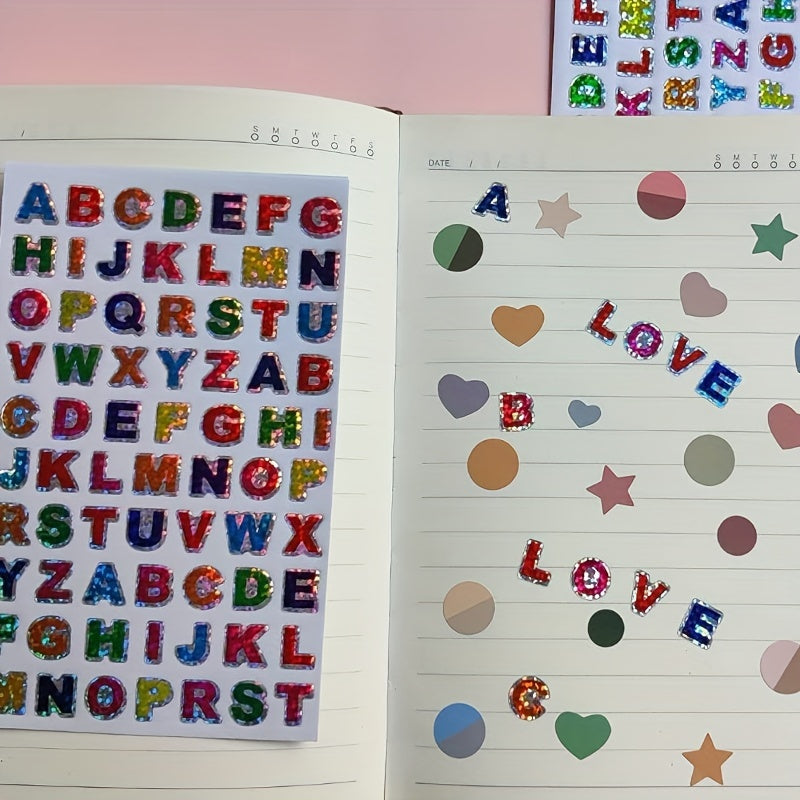 S M T W T F S
/
A B C D E F G
H I J K L M N
O P Q R S T U
V W X Y Z A B
C D E F G H I
J K L M N O P
R S T U V W X
Y Z A B C D E
F G H I J K L
M N O P R S T
D E F
K L M
R S T
Y Z A
F G H
DATE / /
S M T W T
A
LOVE
B
LOVE
C